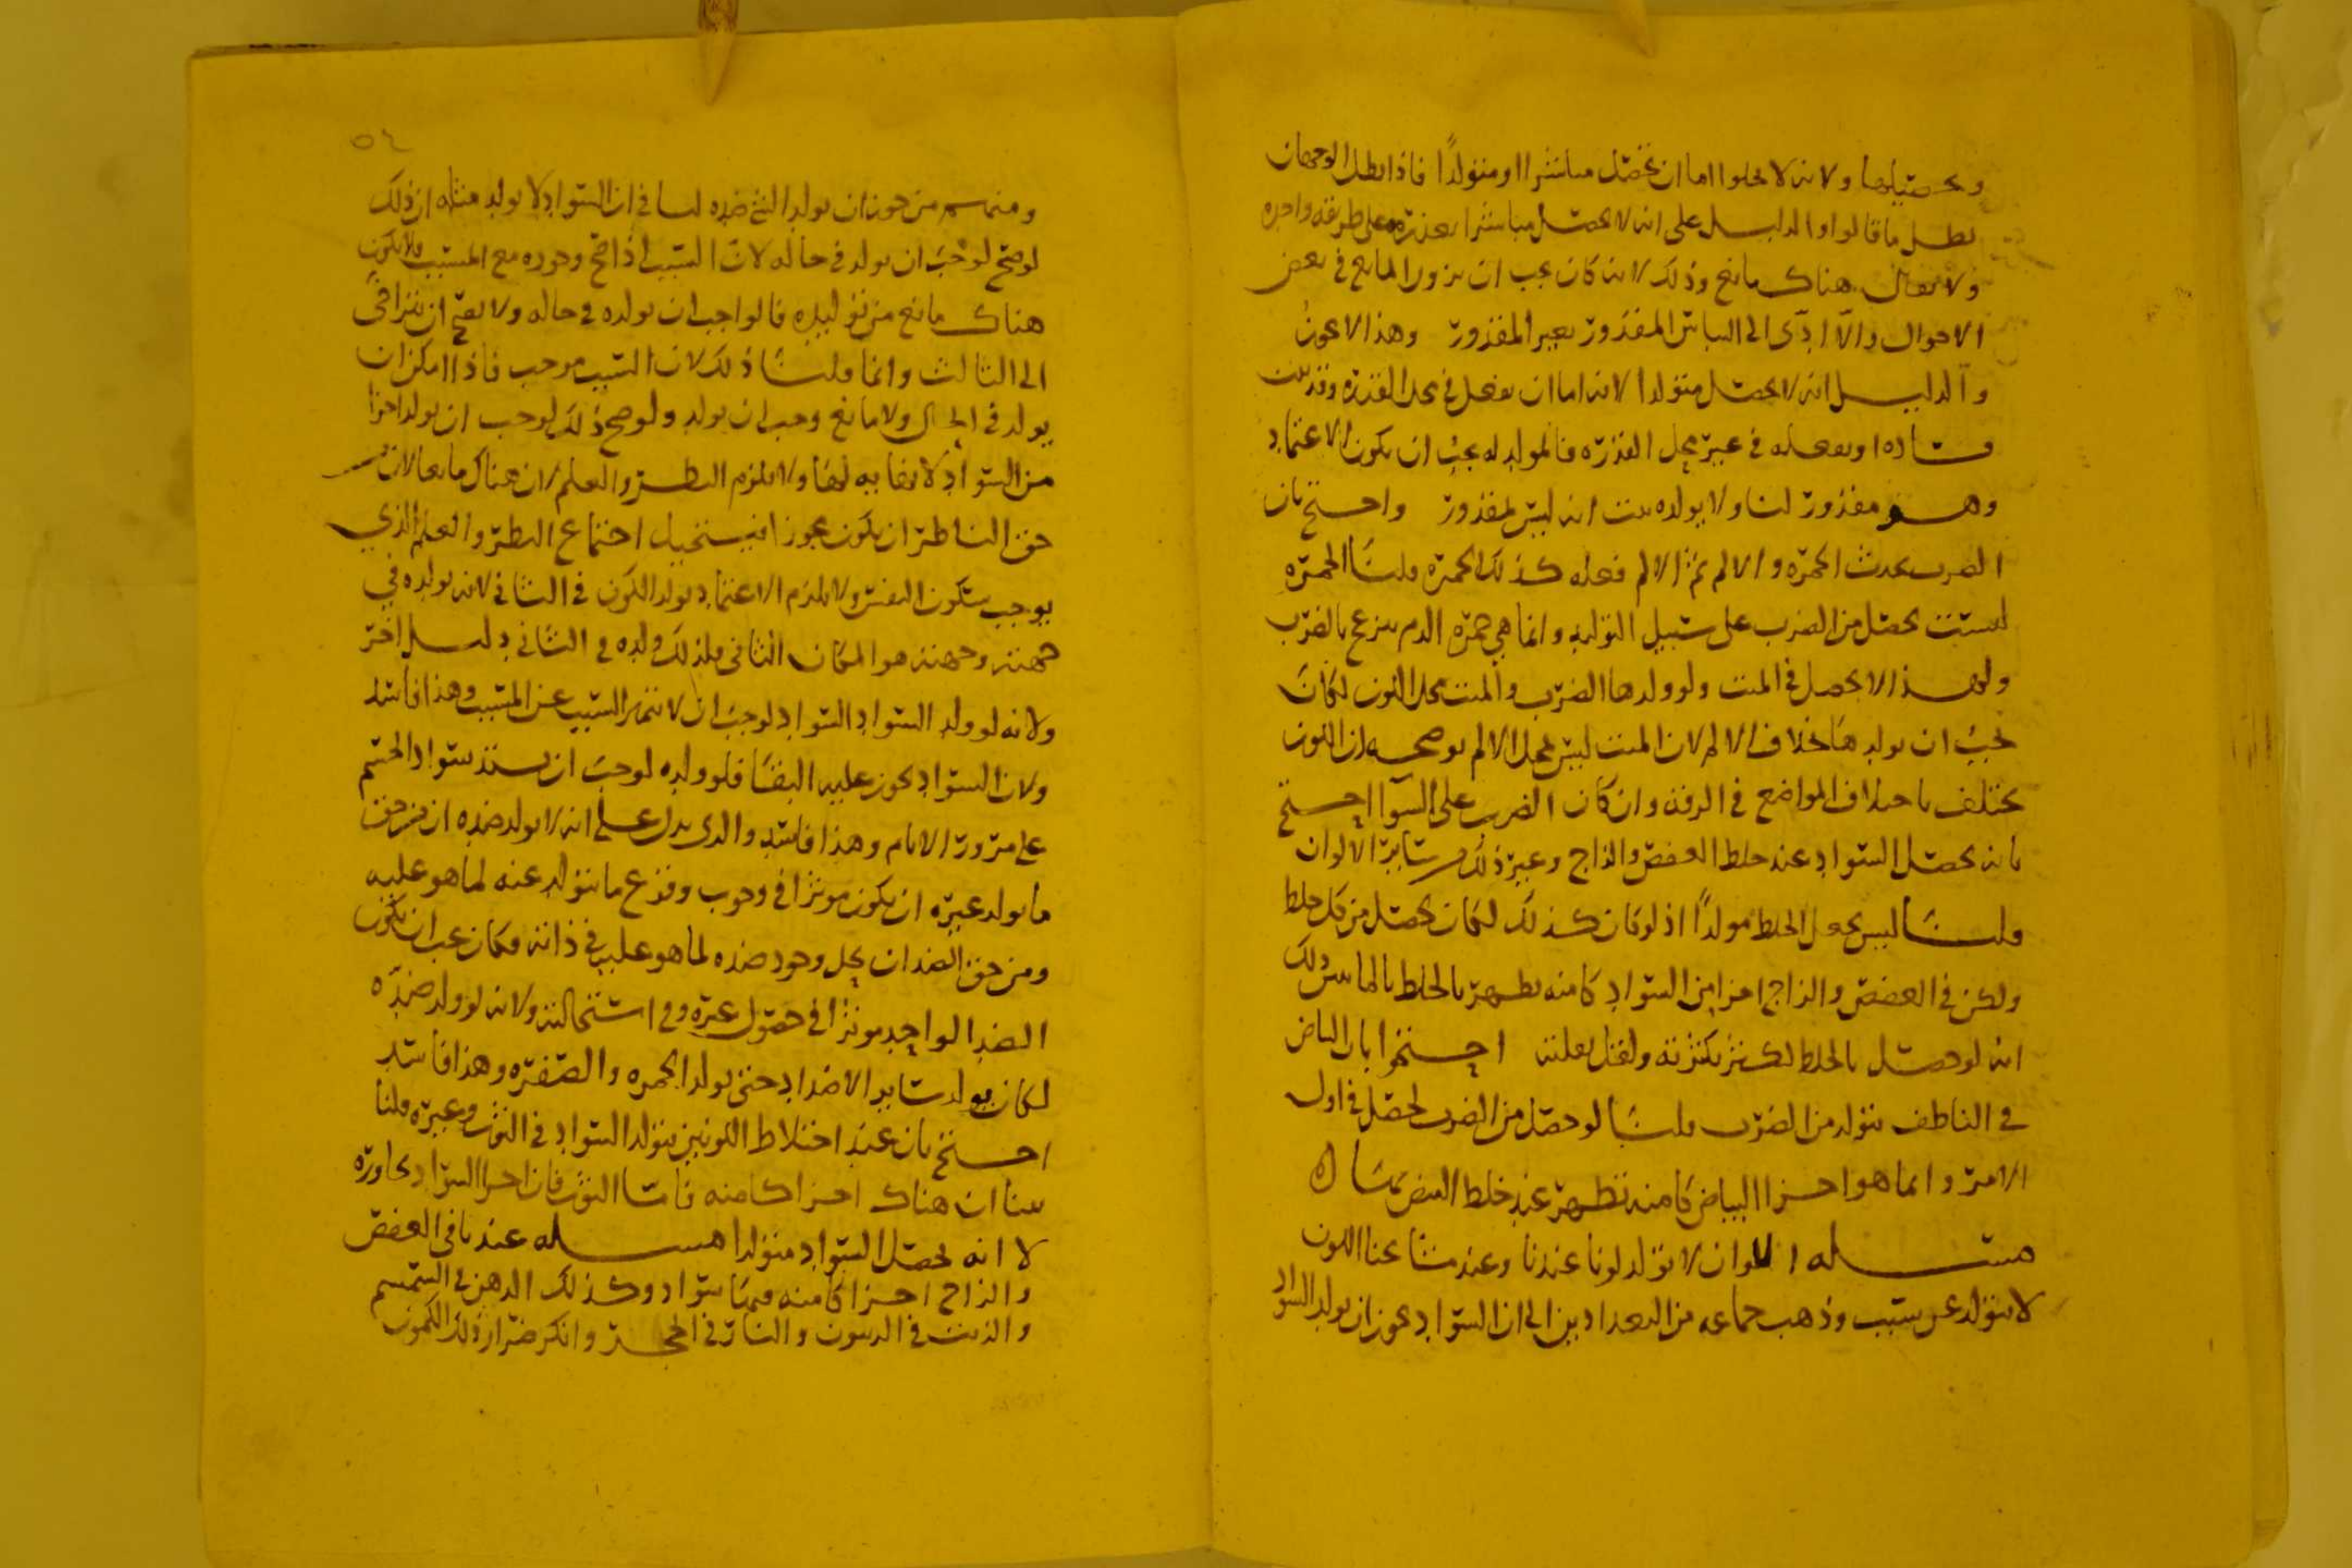 وتحصيلها ولانه لا يخلوا اما ان تحصل مباشرا او متولدًا فاذا بطل الوجهان
بطل ما قالوا والدليل على انه لا يحصل مباشرا تعذره على طريقه واحده
ولا يقال هناك مانع وذلك لانه كان يجب ان يزول المانع في بعض
الاحوال والا ادّى الى التباس المقدور بغير المقدور وهذا لا يجوز
والدليل انه لا يحصل متولدا لانه اما ان يفعل في محل القدره وقد بينت
فساده او يفعله في غير محل القدره فالمولد له يجب ان يكون الاعتماد
وهو مقدور لنا ولا يولده بينت انه ليس بمقدور واحتج بان
الضرب يحدث الحمره والالم ثم الالم فعله كذلك الحمره قلنا الحمره
ليست تحصل من الضرب على سبيل التوليد وانما هي حمره الدم ينزعج بالضرب
ولهذا لا يحصل في الميت ولو ولدها الضرب والميت محل اللون لكان
يجب ان يولدها بخلاف الالم لان الميت ليس بمحل الالم يوضحه ان اللون
يختلف باختلاف المواضع في الرقه وان كان الضرب على السوا احتج
بانه يحصل السواد عند خلط العفص والزاج وغير ذلك من ساير الالوان
قلنا ليس يجعل الخلط مولدًا اذ لو كان كذلك لكان يحصل من كل خلط
ولكن في العفص والزاج اجزا من السواد كامنه يظهر بالخلط بالما يبين ذلك
انه لو حصل بالخلط لكثر بكثرته ولقل بقلته احتجوا بان البياض
في الناطف يتولد من الضرب قلنا لو حصل من الضرب لحصل في اول
الامر وانما هو اجزا البياض كامنه تظهر عند خلط البيض
مسله الالوان لا تولد لونا عندنا وعند مشايخنا اللون
لا يتولد عن سبب وذهب جماعه من البغداديين الى ان السواد يجوز ان يولد السواد
٥٤
ومنهم من جوز ان يولد الشي ضده لنا في ان السواد لا يولد مثله ان ذلك
لو صح لوجب ان يولد في حاله لان السبب اذا صح وجوده مع المسبب ولا يكون
هناك مانع من توليده فالواجب ان يولده في حاله ولا يصح ان يتراخى
الى الثالث وانما قلنا ذلك لان السبب موجب فاذا امكن ان
يولد في الحال ولا مانع وجب ان يولد ولو صح ذلك لوجب ان يولد اجزا
من السواد لا نهايه لها ولا يلزم النظر والعلم لان هناك مانعا لان من
حق الناظر ان يكون مجوزا فيستحيل اجتماع النظر والعلم الذي
يوجب سكون النفس ولا يلزم الاعتماد يولد الكون في الثاني لانه يولده في
جهته وجهته هو المكان الثاني فلذلك ولده في الثاني دليل اخر
ولانه لو ولد السواد السواد لوجب ان لا يتميز السبب عن المسبب وهذا فاسد
ولان السواد يجوز عليه البقا فلو ولده لوجب ان يشتد سواد الجسم
على مرور الايام وهذا فاسد والذي يدل على انه لا يولد ضده ان من حق
ما يولد غيره ان يكون موثرا في وجوب وقوع ما يتولد عنه لما هو عليه
ومن حق الضد ان يحيل وجود ضده لما هو عليه في ذاته فكان يجب ان يكون
الضد الواحد موثرا في حصول غيره وفي استحالته ولانه لو ولد ضدّه
لكان يولد ساير الاضداد حتى يولد الحمره والصفره وهذا فاسد
احتج بان عند اختلاط اللونين يتولد السواد في الثوب وغيره قلنا
بينا ان هناك اجزا كامنه فاما الثوب فان اجزا السواد تجاوره
لا انه يحصل السواد متولدا مسله عندنا في العفص
والزاج اجزا كامنه فيها سواد وكذلك الدهن في السمسم
والزيت في الزيتون والنار في الحجر وانكر ضرار ذلك الكمون